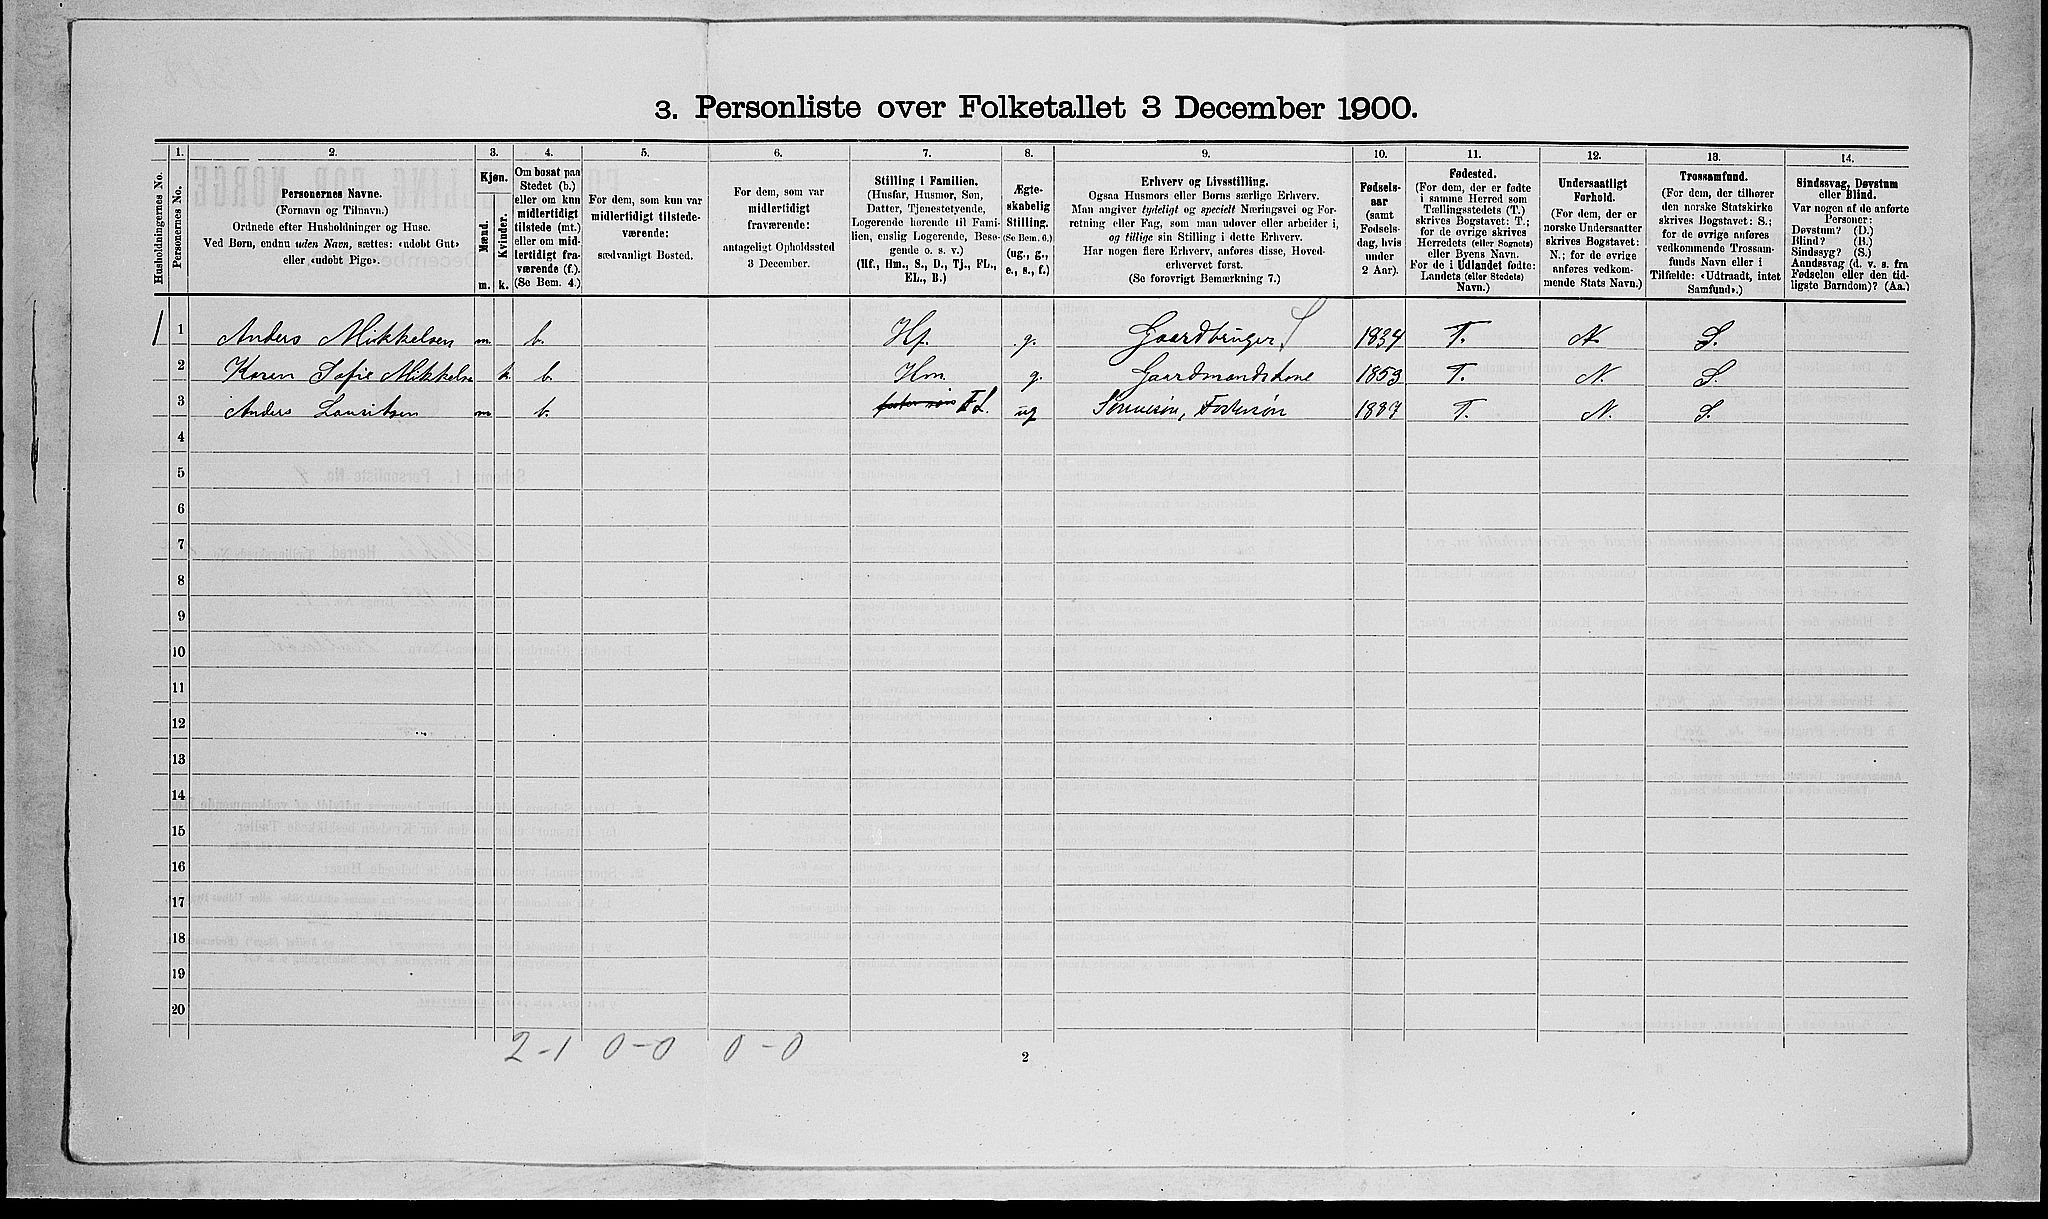 3. Personliste over Folketallet 3 December 1900.
1. 2. 3. 4. 5. 6. 7. 8. 9. 10. 11. 12. 13. 14.
Husholdningernes No.
Personernes No.
Personernes Navne.
(Fornavn og Tilnavn.)
Ordnede efter Husholdninger og Huse.
Ved Børn, endnu uden Navn, sættes: «udøbt Gut»
eller «udøbt Pige».
Kjøn.
Mænd.
Kvinder.
m. k.
Om bosat paa
Stedet (b.)
eller om kun
midlertidigt
tilstede (mt.)
eller om mid-
lertidigt fra-
værende (f.).
(Se Bem. 4.)
For dem, som kun var
midlertidigt tilstede-
værende:
sædvanligt Bosted.
For dem, som var
midlertidigt
fraværende:
antageligt Opholdssted
3 December.
Stilling i Familien.
(Husfar, Husmor, Søn,
Datter, Tjenestetyende,
Logerende hørende til Fami-
lien, enslig Logerende, Besø-
gende o. s. v.)
(Hf., Hm., S., D., Tj., FL.,
EL., B.)
Ægte-
skabelig
Stilling.
(Se Bem. 6.)
(ug., g.,
e., s., f.)
Erhverv og Livsstilling.
Ogsaa Husmors eller Børns særlige Erhverv.
Man angiver tydeligt og specielt Næringsvei og For-
retning eller Fag, som man udøver eller arbeider i,
og tillige sin Stilling i dette Erhverv.
Har nogen flere Erhverv, anføres disse, Hoved-
erhvervet først.
(Se forøvrigt Bemærkning 7.)
Fødsels-
aar
(samt
Fødsels-
dag, hvis
under
2 Aar).
Fødested.
(For dem, der er fødte
i samme Herred som
Tællingsstedets (T.)
skrives Bogstavet: T.;
for de øvrige skrives
Herredets (eller Sognets)
eller Byens Navn.
For de i Udlandet fødte:
Landets (eller Stedets)
Navn.)
Undersaatligt
Forhold.
(For dem, der er
norske Undersaatter
skrives Bogstavet:
N.; for de øvrige
anføres vedkom-
mende Stats Navn.)
Trossamfund.
(For dem, der tilhører
den norske Statskirke
skrives Bogstavet: S.;
for de øvrige anføres
vedkommende Trossam-
funds Navn eller i
Tilfælde: «Udtraadt, intet
Samfund».)
Sindssvag, Døvstum
eller Blind.
Var nogen af de anførte
Personer:
Døvstum? (D.)
Blind? (B.)
Sindssyg? (S.)
Aandssvag (d. v. s. fra
Fødselen eller den tid-
ligste Barndom)? (Aa.)
1 1 Anders Mikkelsen m. b. Hf. g. Gaardbruger 1834 T. N. S.
2 Karen Sofie Mikkelse k. b. Hm. g. Gaardmandskone 1853 T. N. S.
3 Anders Lauritsen m b. FL. ug Sønnesøn, Fostersøn 1887 T. N. S.
4
5
6
7
8
9
10
11
12
13
14
15
16
17
18
19
20
2-1 0-0 0-0
2